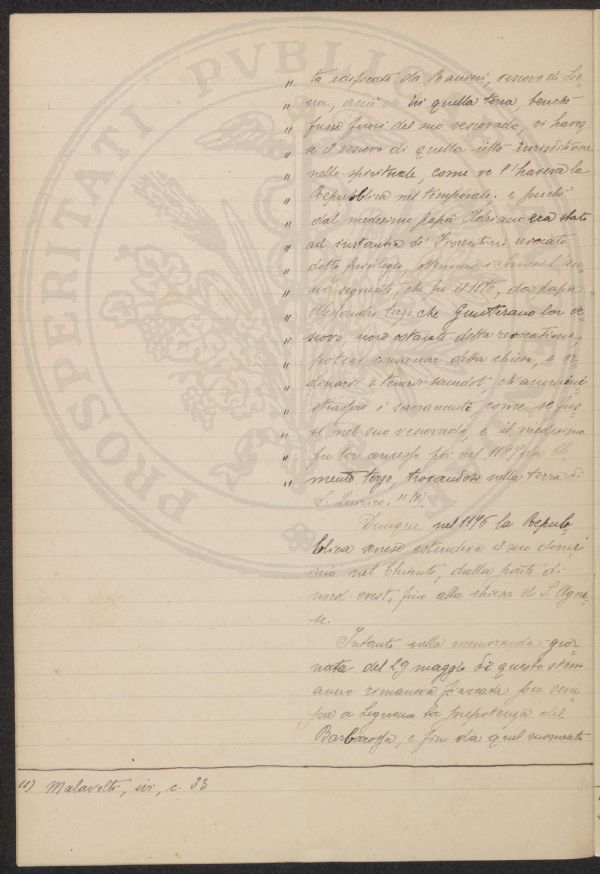 PROSPERITATI PVBLICAE
" ta edificata da Ranieri, vescovo di Sie
" na, anzi in quella terra, benchè
" fusse fuori del suo vescovado, vi haves
" se il vescovo di quella città iurisditione
" nello spirituale, come ve l'haveva la
" Repubblica nel temporale. e perchè
" dal medesimo papa Adriano era stato
" ad instantia di Fiorentini revocato
" detto privilegio, ottennero i Sanesi l'an
" no seguente, che fu il 1176, da papa
" Alessandro terzo che Gunterano lor ve
" scovo, non ostante detta revocatione,
" potesse consacrar detta chiesa, e or
" dinarvi e tenervi sacerdoti, ch'amministrassero
" i sacramenti, come se fus
" se nel suo vescovado, e il medesimo
" fu lor concesso poi nel 1189 da Cle
" mente terzo, trovandosi nella terra di
S. Quirico. " (1).
Dunque nel 1176 la Repub
blica senese estendeva il suo domi
nio nel Chianti, dalla parte di
nord-ovest, fino alla chiesa di S. Agne
se.
Intanto nella memoranda gior
nata del 29 maggio di questo stesso
anno rimaneva fiaccata per sem
pre a Legnano la prepotenza del
Barbarossa, e fin da quel momento
(1) Malavolti, ivi, c. 33